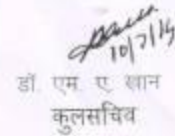 10/7/14
डॉ. एम. ए. खान
कुलसचिव